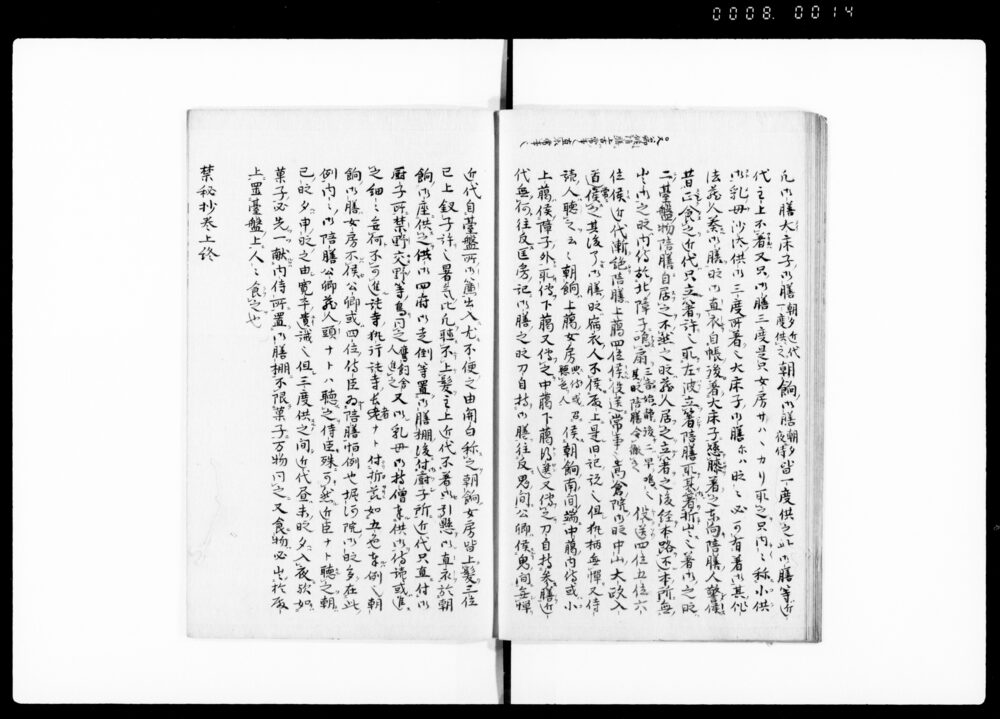 0008. 0014
凡御膳大床子御膳朝夕近代一度供之朝餉御膳朝夕夜侍皆一度供之此御膳等近
代主上不着又只御膳三度是只女房サハヽカリ取之只内々称小供
御乳母沙汰供御三度所着之大床子御膳尓ハ時々必可有着御其作
法蔵人奏御膳時御直衣自帳後着大床子懸膝着之東向陪膳人警蹕
昔正食之近代只立箸許取左波立箸陪膳取其箸折出之着御之時
二臺盤物陪膳自居之不然之時蔵人居之立箸之後経本路還本所無
出御之時内侍於北障子鳴扇 役送四位五位六
位候近代漸絶陪膳上臈四位候役送常事高倉院御時中山大政入
道候之其後了御膳時宿衣人不候座上是旧記説也但執柄無憚又侍
読人聴之云々朝餉上臈女房 候朝餉南間端中臈内侍或小
上臈候障子外取伝下臈又伝之中臈下臈役送又伝之刀自持参膳近
代無何往反匡房記御膳之時刀自持御膳往反鬼間公卿候鬼間無憚
近代自臺盤所御簾出入尤不便之由関白称之朝餉女房皆上髪三位
已上釵子許也暑気比凡聴不上髪主上近代不着御引懸御直衣於朝
餉御座供之供御四府御走倒等置御膳棚後付厨子所近代只直付御
厨子所禁野交野等鳥同之 又御乳母御持僧等供御侍読或進
之細々無何不可進諸寺執行諸寺長者ナト付折荒如五色等例也朝
餉御膳女房不候公卿或四位侍臣為陪膳恒例也堀河院御時多在此
例内々御陪膳公卿蔵人頭ナトハ聴之侍臣殊可然近臣ナト聴之朝
已時夕申時之由寛平遺誡也但三度供之間近代昼未時夕入夜歟如
菓子必先一献内侍所置御膳棚不限菓子万物同之又食物必出於夜
上置臺盤上人々食之也
禁秘抄巻上終